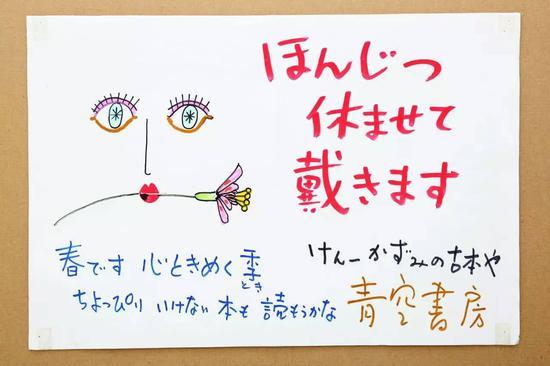 ほんじつ
休ませて
戴きます
春です 心ときめく季
とき
ちょっぴり いけない 本も 読もうかな
けんーかずみの古本や
青空書房